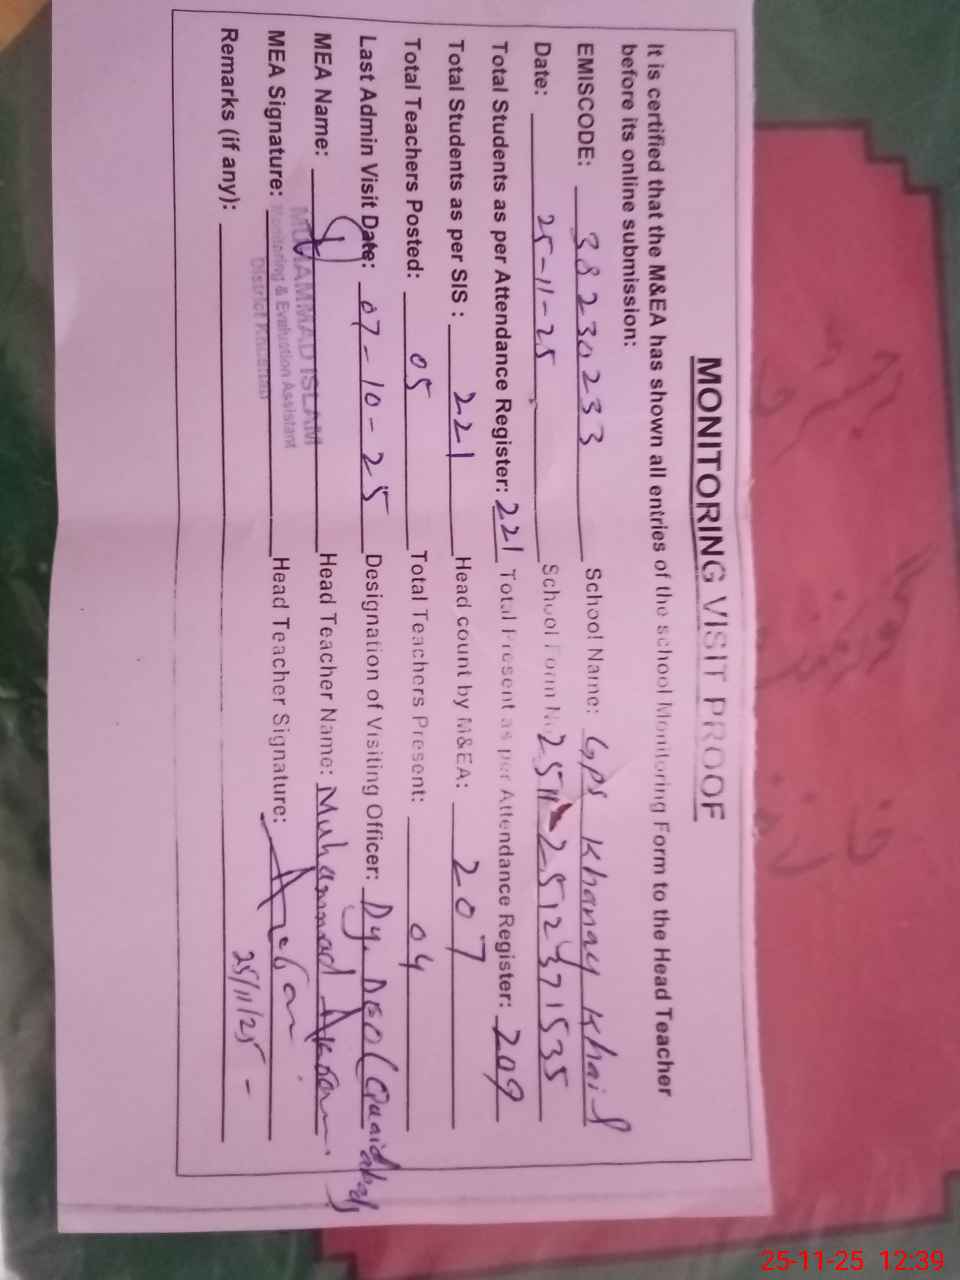 MONITORING VISIT PROOF
It is certified that the M&EA has shown all entries of the school Monitoring Form to the Head Teacher
before its online submission:
EMISCODE: 38230233 School Name: GPS Khanay Khail
Date: 25-11-25 School Form No 2511 2512371535
Total Students as per Attendance Register: 221 Total Present as per Attendance Register: 209
Total Students as per SIS : 221 Head count by M&EA: 207
Total Teachers Posted: 05 Total Teachers Present: 04
Last Admin Visit Date: 07-10-25 Designation of Visiting Officer: Dy. DEO (Quaidabad)
MEA Name: MUHAMMAD ISLAM Head Teacher Name: Muhammad Akram.
MEA Signature: Monitoring & Evaluation Assistant Head Teacher Signature:
District Khushab
Remarks (if any): 25/11/25
25-11-25 12:39